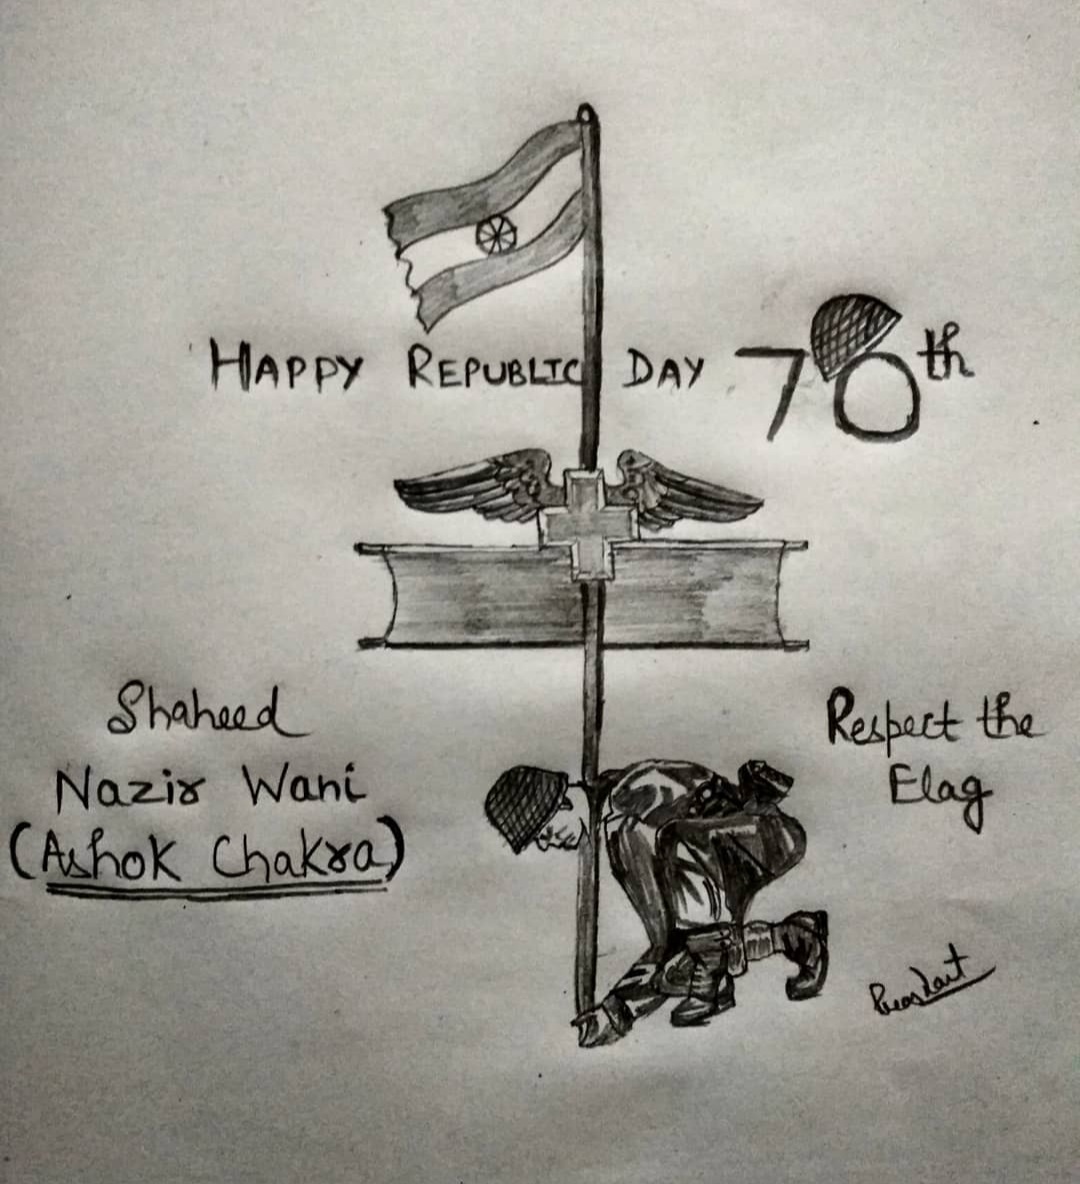 HAPPY REPUBLIC DAY 70th
Shaheed
Nazir Wani
(Ashok Chakra)
Respect the
Flag
Prashant